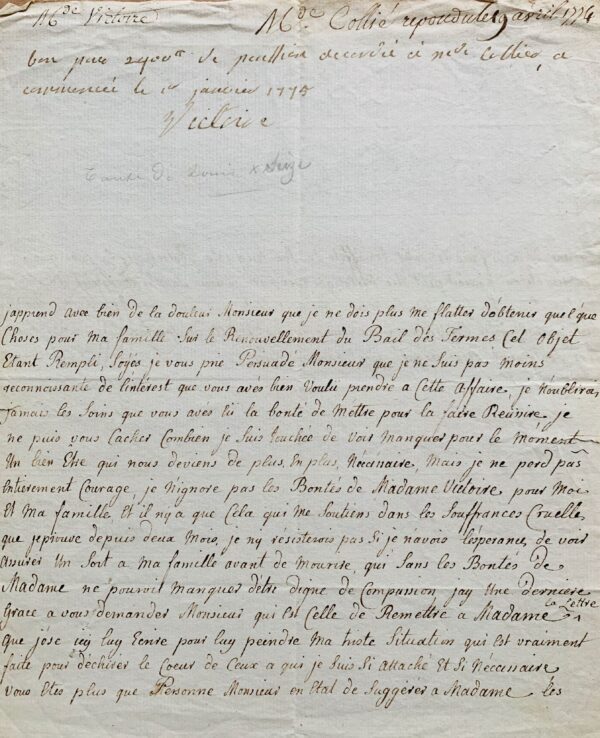 M.de Victoire M.de Collié repondu le 19 avril 1774
bon pour 2400# de pention accordée à m.de Collié, a
commencée le 1er janvier 1775
Victoire
Tante de Louis Seize
japprend avec bien de la douleur Monsieur que je ne dois plus me flatter d'obtenir quelque
Choses pour ma famille Sur le Renouvellement du Bail des Fermes Cet Objet
Etant Rempli, Soyés je vous prie Persuadé Monsieur que je ne Suis pas moins
reconnoissante de linterest que vous avés bien Voulu prendre a Cette Affaire, je N'oublirai
Jamais les Soins que vous avés Eü la bonté de Mettre pour la faire Réuvire. je
ne puis vous Cacher Combien je Suis touchée de Voir Manquer pour le Moment
Un bien Etre qui nous deviens de plus, En plus, Nécessaire, Mais je ne perd pas
Entierement Courage, je N'ignore pas les Bontés de Madame Victoire pour Moi
Et Ma famille Et il n'y a que Cela qui Me Soutiens dans les Souffrances Cruelle
que j'eprouve depuis deux Mois, je ny resisterois pas Si je navois l'esperance, de voir
Assurer Un Sort a Ma famille avant de Mourire, qui Sans les Bontés de
Madame ne pouroit Manquer d'être digne de Compassion jay Une derniere
Grace a vous demander Monsieur qui Est Celle de Remettre a Madame la Lettre
que j'ose icy luy Ecrire pour luy peindre Ma triste Situation qui Est vraiment
faite pour déchirer le Coeur de Ceux a qui je Suis Si attaché Et Si Nécessaire
vous Etes plus que Personne Monsieur en Etat de Suggérer a Madame les